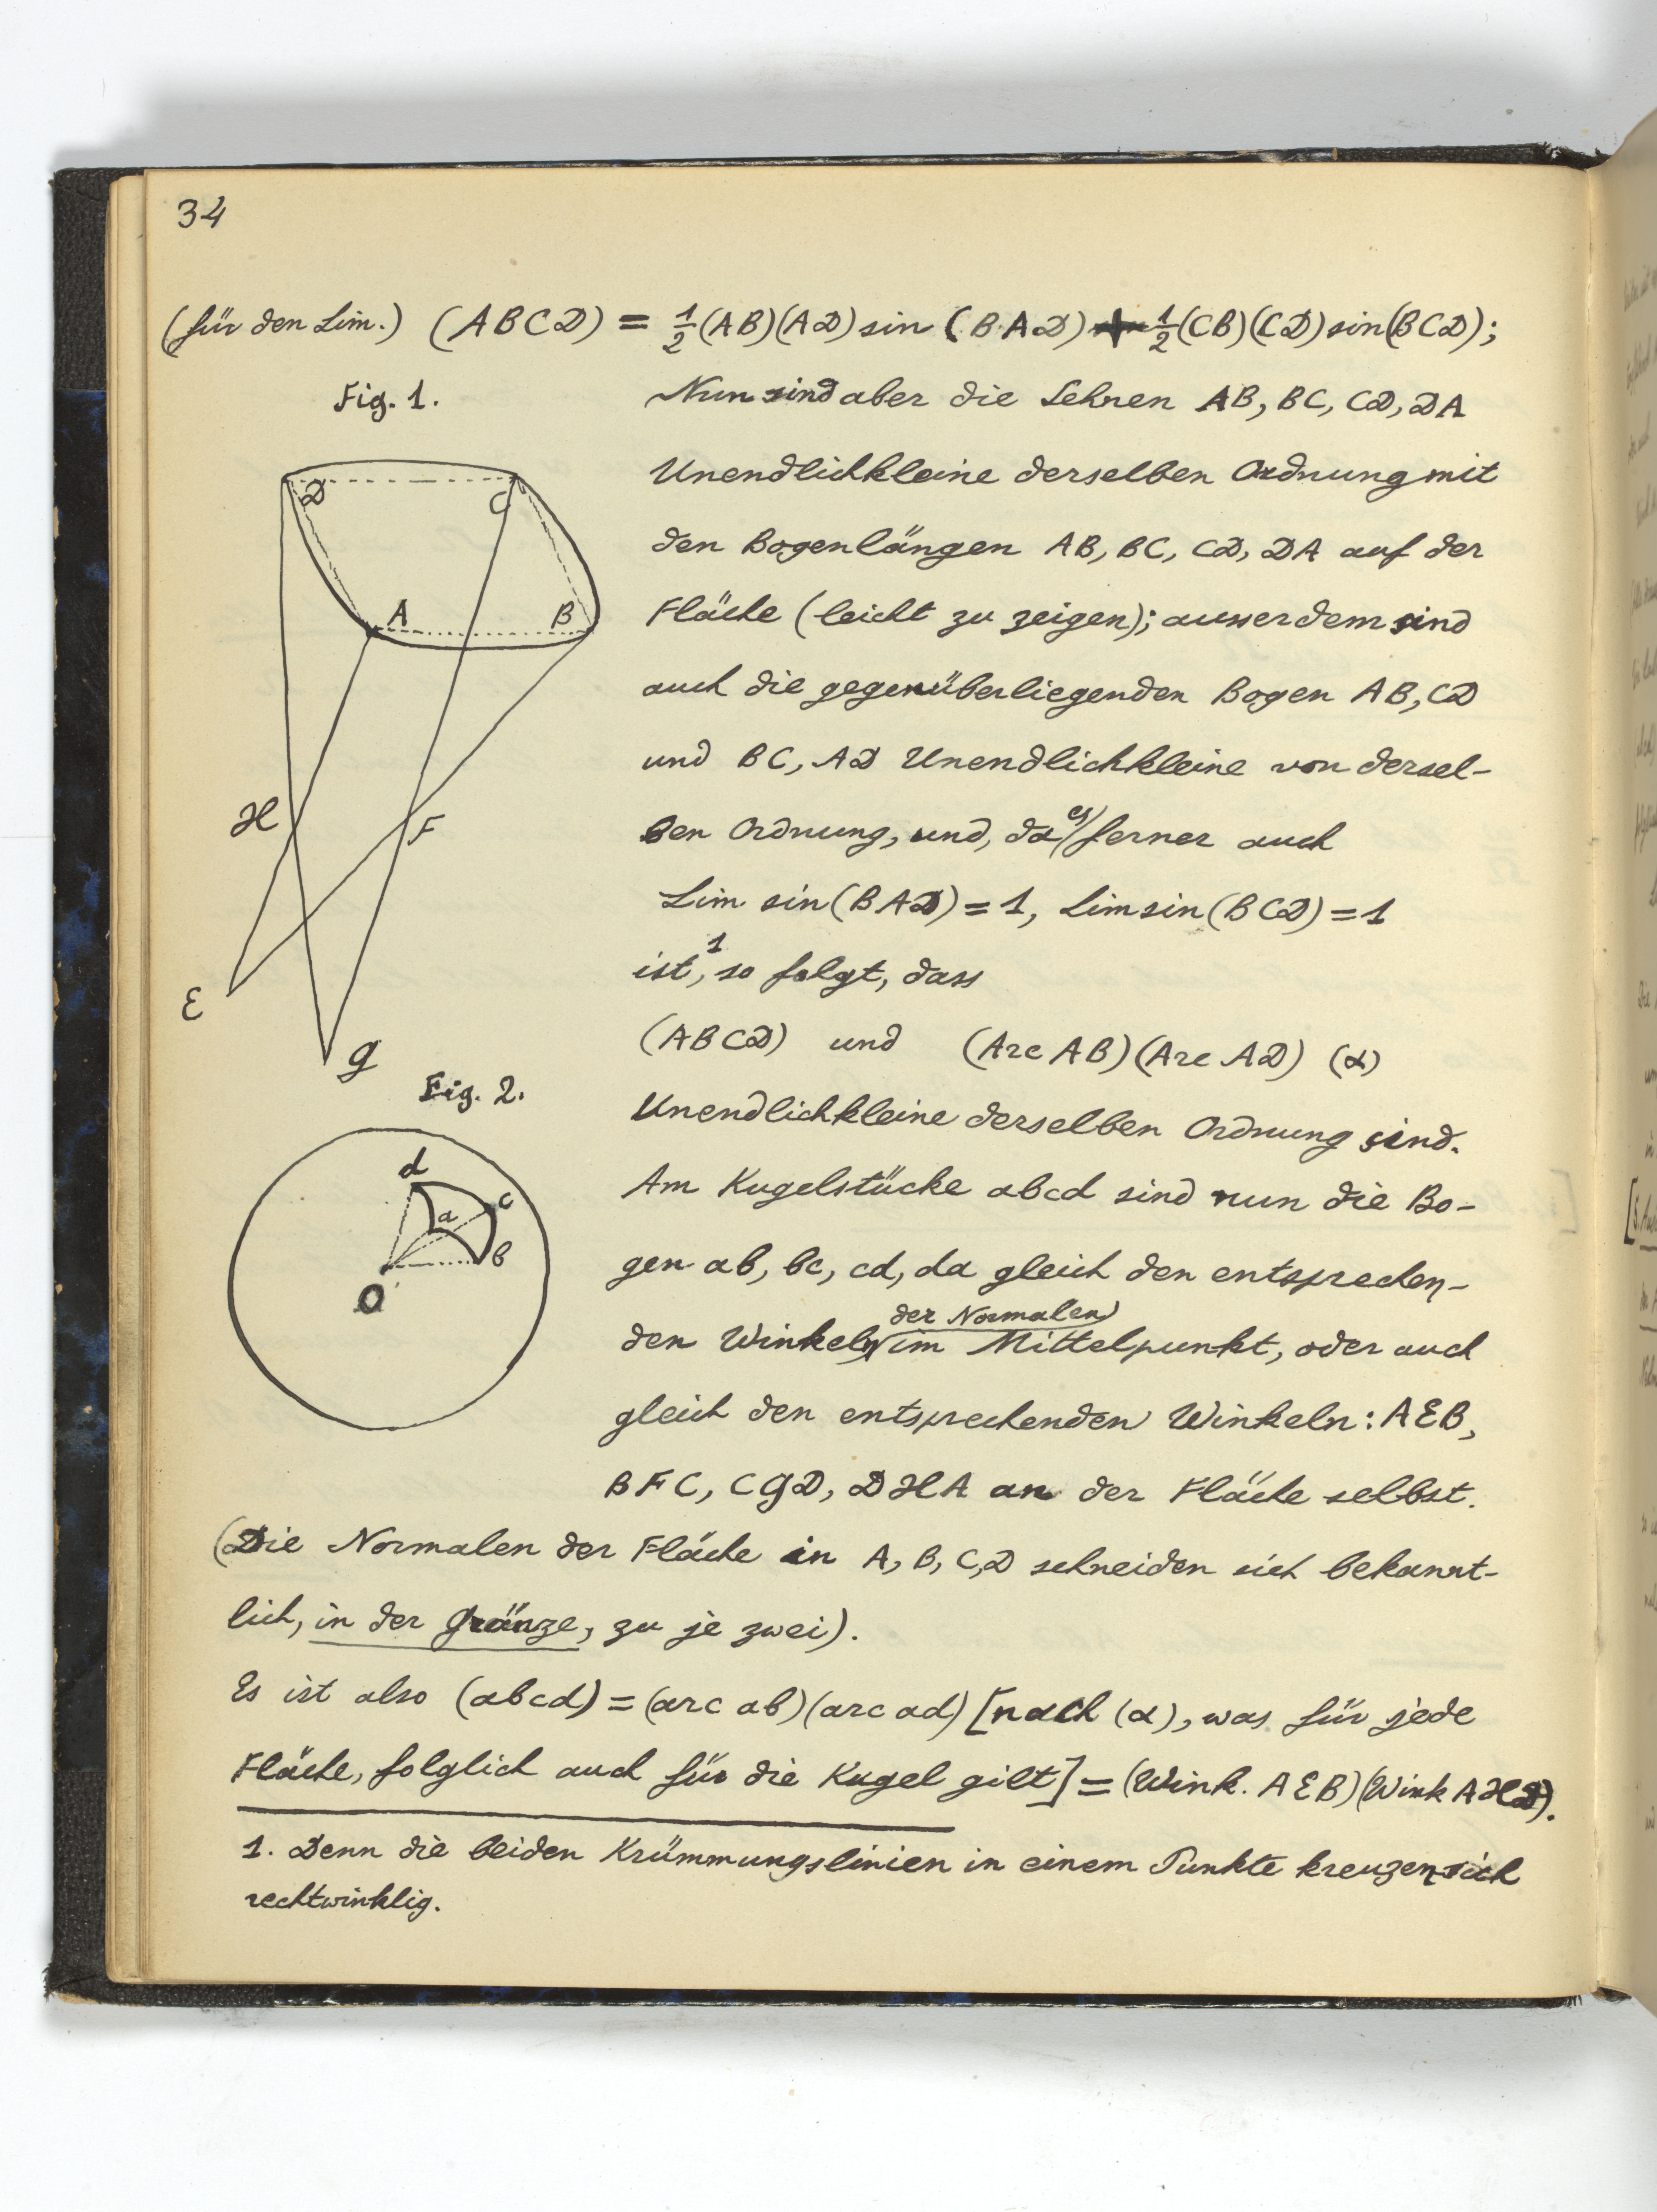 34
(für den Lim.) (ABCD) = 1/2 (AB)(AD) sin (BAD) + 1/2 (CB)(CD) sin(BCD);
Fig. 1.
Nun sind aber die Sehnen AB, BC, CD, DA
Unendlichkleine derselben Ordnung mit
den Bogenlängen AB, BC, CD, DA auf der
Fläche (leicht zu zeigen); ausserdem sind
auch die gegenüberliegenden Bogen AB, CD
und BC, AD Unendlichkleine von dersel-
ben Ordnung, und, da es ferner auch
Lim sin(BAD) = 1, Lim sin(BCD) = 1
ist,¹ so folgt, dass
(ABCD) und (Arc AB)(Arc AD) (α)
Unendlichkleine derselben Ordnung sind.
D
C
A
B
H
F
E
G
Fig. 2.
d
c
a
b
O
Am Kugelstücke abcd sind nun die Bo-
gen ab, bc, cd, da gleich den entsprechen-
den Winkeln der Normalen im Mittelpunkt, oder auch
gleich den entsprechenden Winkeln: AEB,
BFC, CGD, DHA an der Fläche selbst.
(Die Normalen der Fläche in A, B, C, D schneiden sich bekannt-
lich, in der Gränze, zu je zwei).
Es ist also (abcd) = (arc ab)(arc ad) [nach (α), was für jede
Fläche, folglich auch für die Kugel gilt] = (Wink. AEB)(Wink AHD).
1. Denn die beiden Krümmungslinien in einem Punkte kreuzen sich
rechtwinklig.